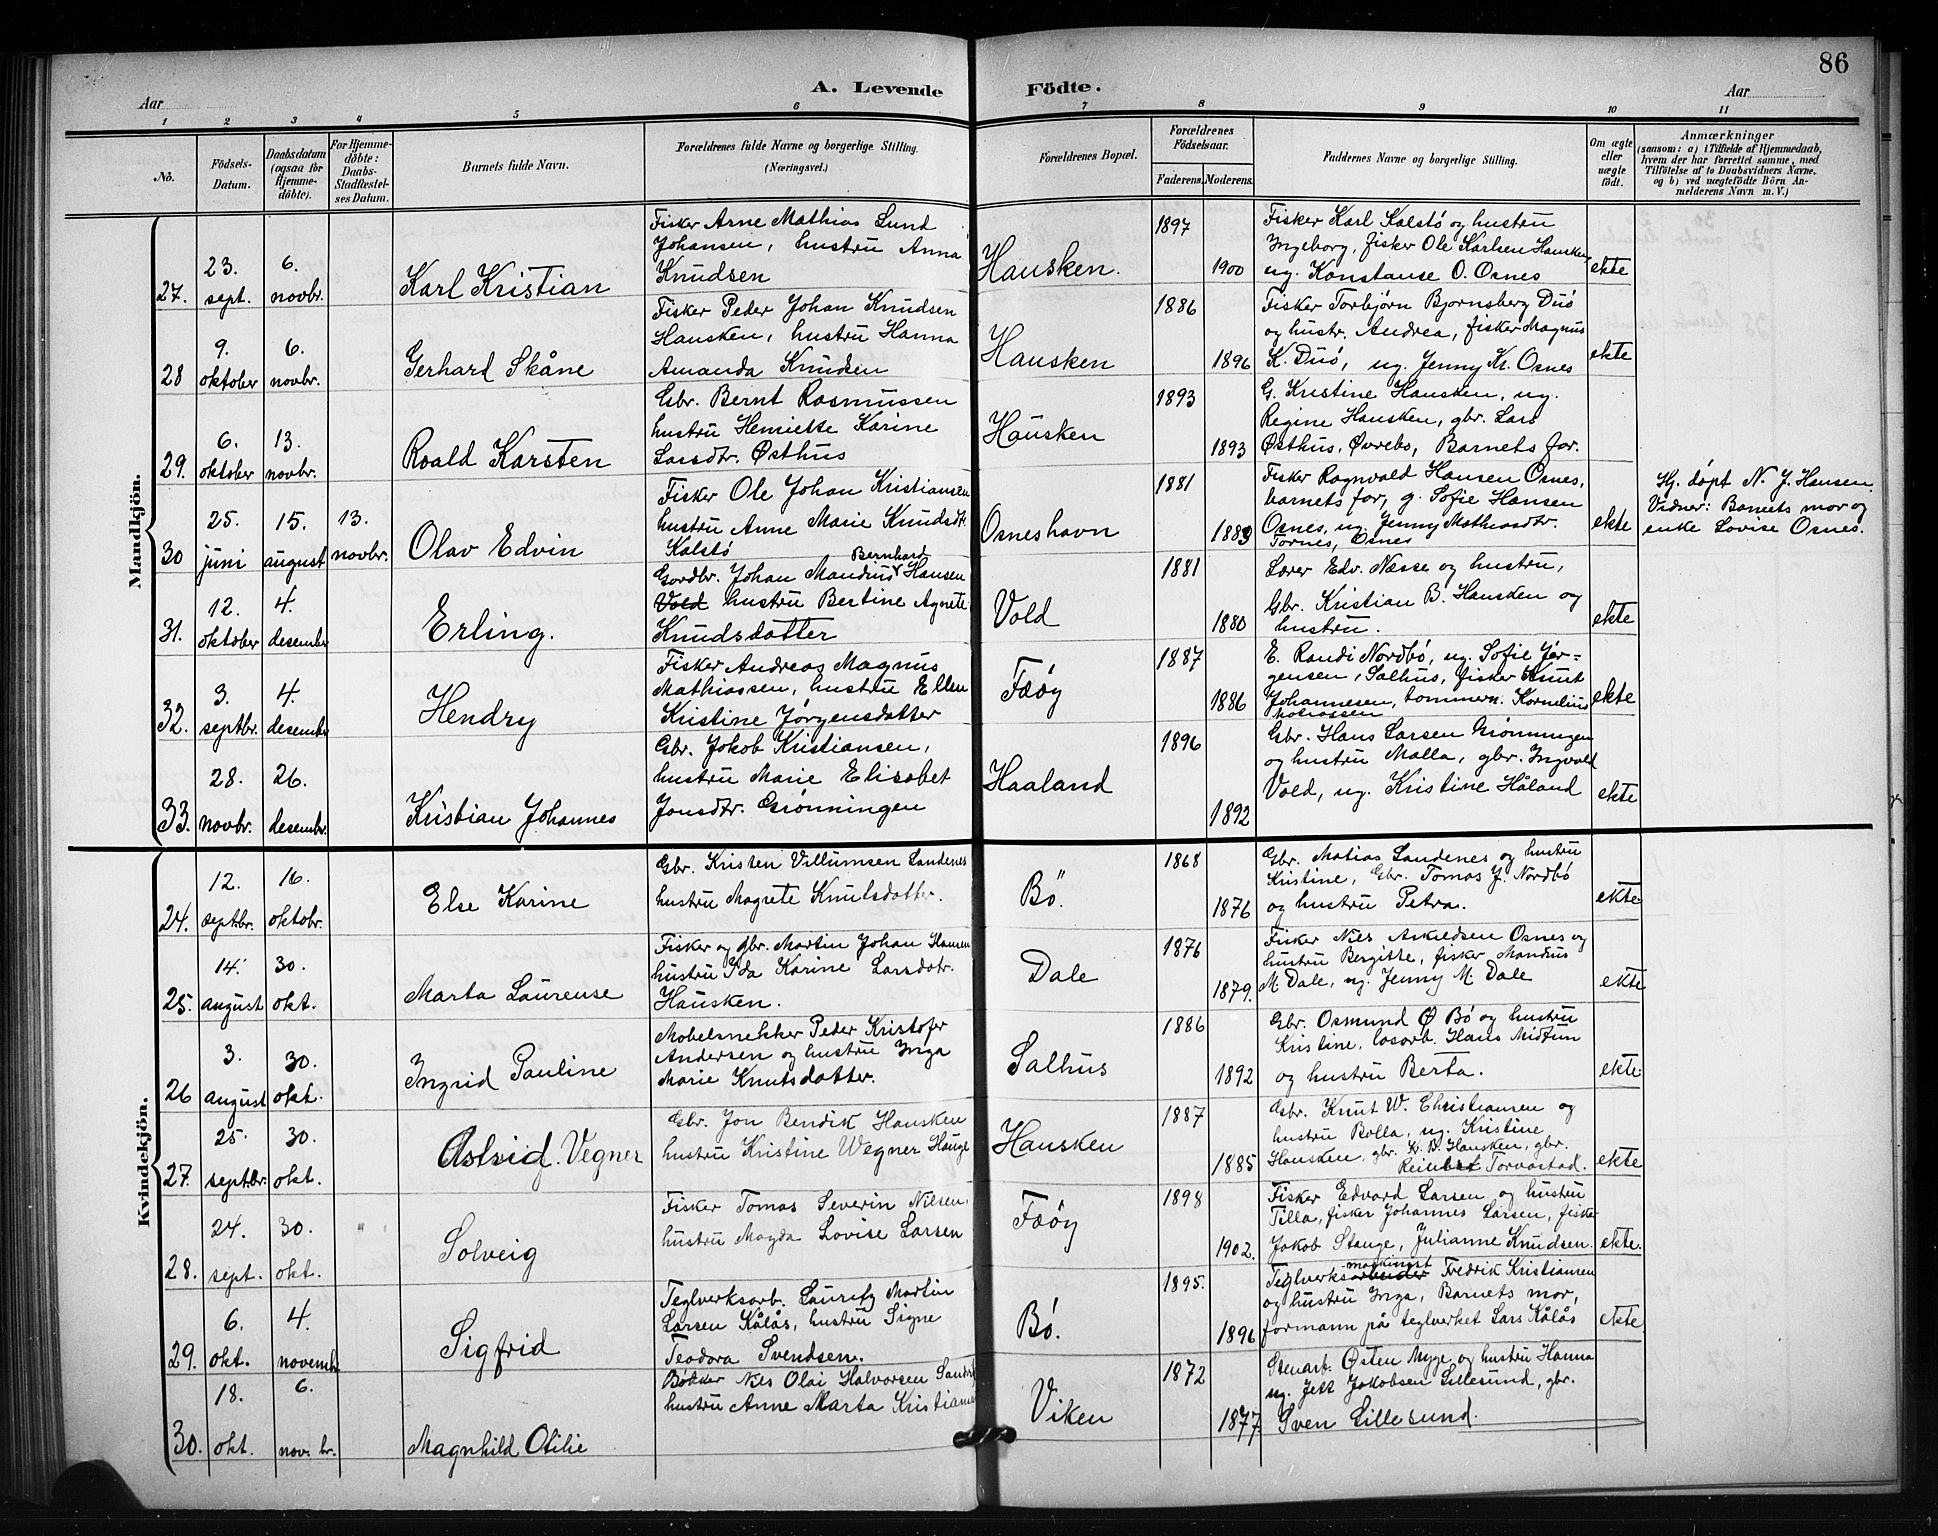 86
A. Levende Födte.
Aar
Aar
1 2 3 4 5 6 7 8 9 10 11
No.
Födsels-Datum.
Daabsdatum (ogsaa for Hjemme-döbte).
For Hjemme-döbte: Daabs-Stadfæstel-ses Datum.
Barnets fulde Navn.
Forældrenes fulde Navne og borgerlige Stilling.
(Næringsvei.)
Forældrenes Bopæl.
Forældrenes Födselsaar.
Faderens. Moderens.
Faddernes Navne og borgerlige Stilling.
Om ægte eller uægte födt.
Anmærkninger
(saasom: a) i Tilfælde af Hjemmedaab, hvem der har forrettet samme, med Tilföielse af to Daabsvidners Navne. og b) ved uægtefödte Börn An-melderens Navn m. V.)
Mandkjön.
27. 23. sept. 6. novbr. Karl Kristian
Fisker Arne Mathias Lund
Johansen, hustru Anna
Knudsen
Hausken. 1897 1900
Fisker Karl Kalstö og hustru
Ingeborg, fisker Ole Karlsen Hausken,
ug. Konstanse O. Osnes
ekte
28 9. oktober 6. novbr. Gerhard Skåne
Fisker Peder Johan Knudsen
Hausken, hustru Hanna
Amanda Knudsen
Hausken 1886 1896
Fisker Torbjørn Bjornsberg Duö
og hustr. Andrea, fisker Magnus
K. Duö, ug. Jenny Kr. Osnes
ekte
29. 6. oktober 13. novbr. Roald Karsten
Gbr. Bernt Rasmussen
hustru Henriette Karine
Larsdtr. Østhus
Hausken 1893 1893
G. Kristine Hausken, ug.
Regine Hausken, gbr. Lars
Østhus, Øvrebø, Barnets far.
30 25. juni 15. august 13. novbr. Olav Edvin
Fisker Ole Johan Kristiansen
hustru Anne Marie Knudsdt.
Kalstö
Osneshavn 1881 1883
Fisker Ragnvald Hansen Osnes,
barnets far, g. Sofie Hansen
Osnes, ug. Jenny Mathiasdtr.
Tornes, Osnes
ekte
Hj. döpt N. J. Hansen.
Vidner: Barnets mor og
enke Lovise Osnes.
31. 12. oktober 4. desember Erling.
Bernhard
Gordbr. Johan Mandius Hansen
Vold hustru Bertine Agnete
Knudsdatter
Vold 1881 1880
Lærer Edv. Næsse og hustru,
Gbr. Kristian B. Hausken og
hustru.
ekte
32. 3. septbr. 4. desembr Hendry
Fisker Andreas Magnus
Mathiassen, hustru Ellen
Kristine Jørgensdatter
Føöy 1887 1886
E. Randi Nordbö, ug. Sofie Jör=
gensen, Salhus, fisker Knut
Johannesen, tommerm. Kornelius
ekte
33. 28. novbr. 26. desembr. Kristian Johannes
Gbr. Jokob Kristiansen,
hustru Marie Elisabet
Jonsdtr. Grønningen
Haaland 1896 1892
Gbr. Hans Larsen Grønningen
og hustru Malla, gbr. Ingvald
Vold, ug. Kristine Håland
ekte
Kvindekjön.
24. 12. septbr. 16. oktobr. Else Karine
Gbr. Kristen Villumsen Sandenes
hustru Magrete Knutsdatter.
Bö. 1868 1876
Gbr. Matias Sandenes og hustru
Kristine, Gbr. Tomas J. Nordbö
og hustru Petra.
ekte
25. 14. august 30. okt. Marta Laurense
Fisker og gbr. Martin Johan Hansen
hustru Ida Karine Larsdatr.
Hausken.
Dale 1876 1879.
Fisker Nils Askildsen Osnes og
hustru Bergitte, fisker Mandius
M. Dale, ug. Jenny M. Dale
ekte
26 3. august 30. okt. Ingrid Pauline
Mobelsnekker Peder Kristofer
Andersen og hustru Inga
Marie Knutsdatter.
Salhus 1886 1892
Gbr. Osmund Ø Bö og hustru
Kristine, losarb. Hans Midtun
og hustru Berta.
ekte
27. 25. septbr. 30. okt. Astrid Vegner
Gbr. Jon Bendik Hausken
hustru Kristine Wegner Hauge
Hausken 1887 1885
Gbr. Knut W. Christiansen og
hustru Bolla, ug. Kristine
Hausken, gbr. K. B. Hausken, gbr.
Reinert Torvastad.
ekte
28. 24. sept. 30. okt. Solveig
Fisker Tomas Severin Nilsen
hustru Magda Lovise Larsen
Føöy 1898 1902.
Fisker Edvard Larsen og hustru
Tilla, fisker Johannes Larsen, fisker
Jokob Stange, Julianne Knudsen.
ekte.
29. 6. okt. 4. novembr Sigfrid
Teglverksarb. Lauritz Martin
Larsen Kålås, hustru Signe
Teodora Svendsen.
Bö. 1895. 1896
maskinist
Teglverksarbeider Fredrik Kristiansen
og hustru Inga, Barnets mor,
formann på teglverket Lars Kålås
ekte
30. 18. okt. 6. nov. br. Magnhild Otilie
Bøkker Nils Olai Halvorsen
hustru Anne Marta
Viken 1872 1877
Stenarb. Østen Myge og hustru Hanna
ug. Jokobsen Lillesund, gbr.
Sven Lillesund.